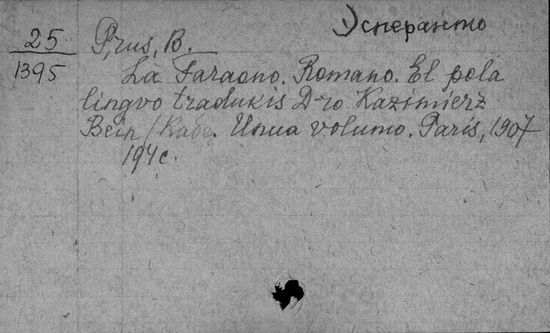 Эсперанто
25
1395
Prus, B.
La Faraono. Romano. El pola
lingvo tradukis D-ro Kazimierz
Bein /Kabe. Unua volumo. Paris, 1907
194 c.